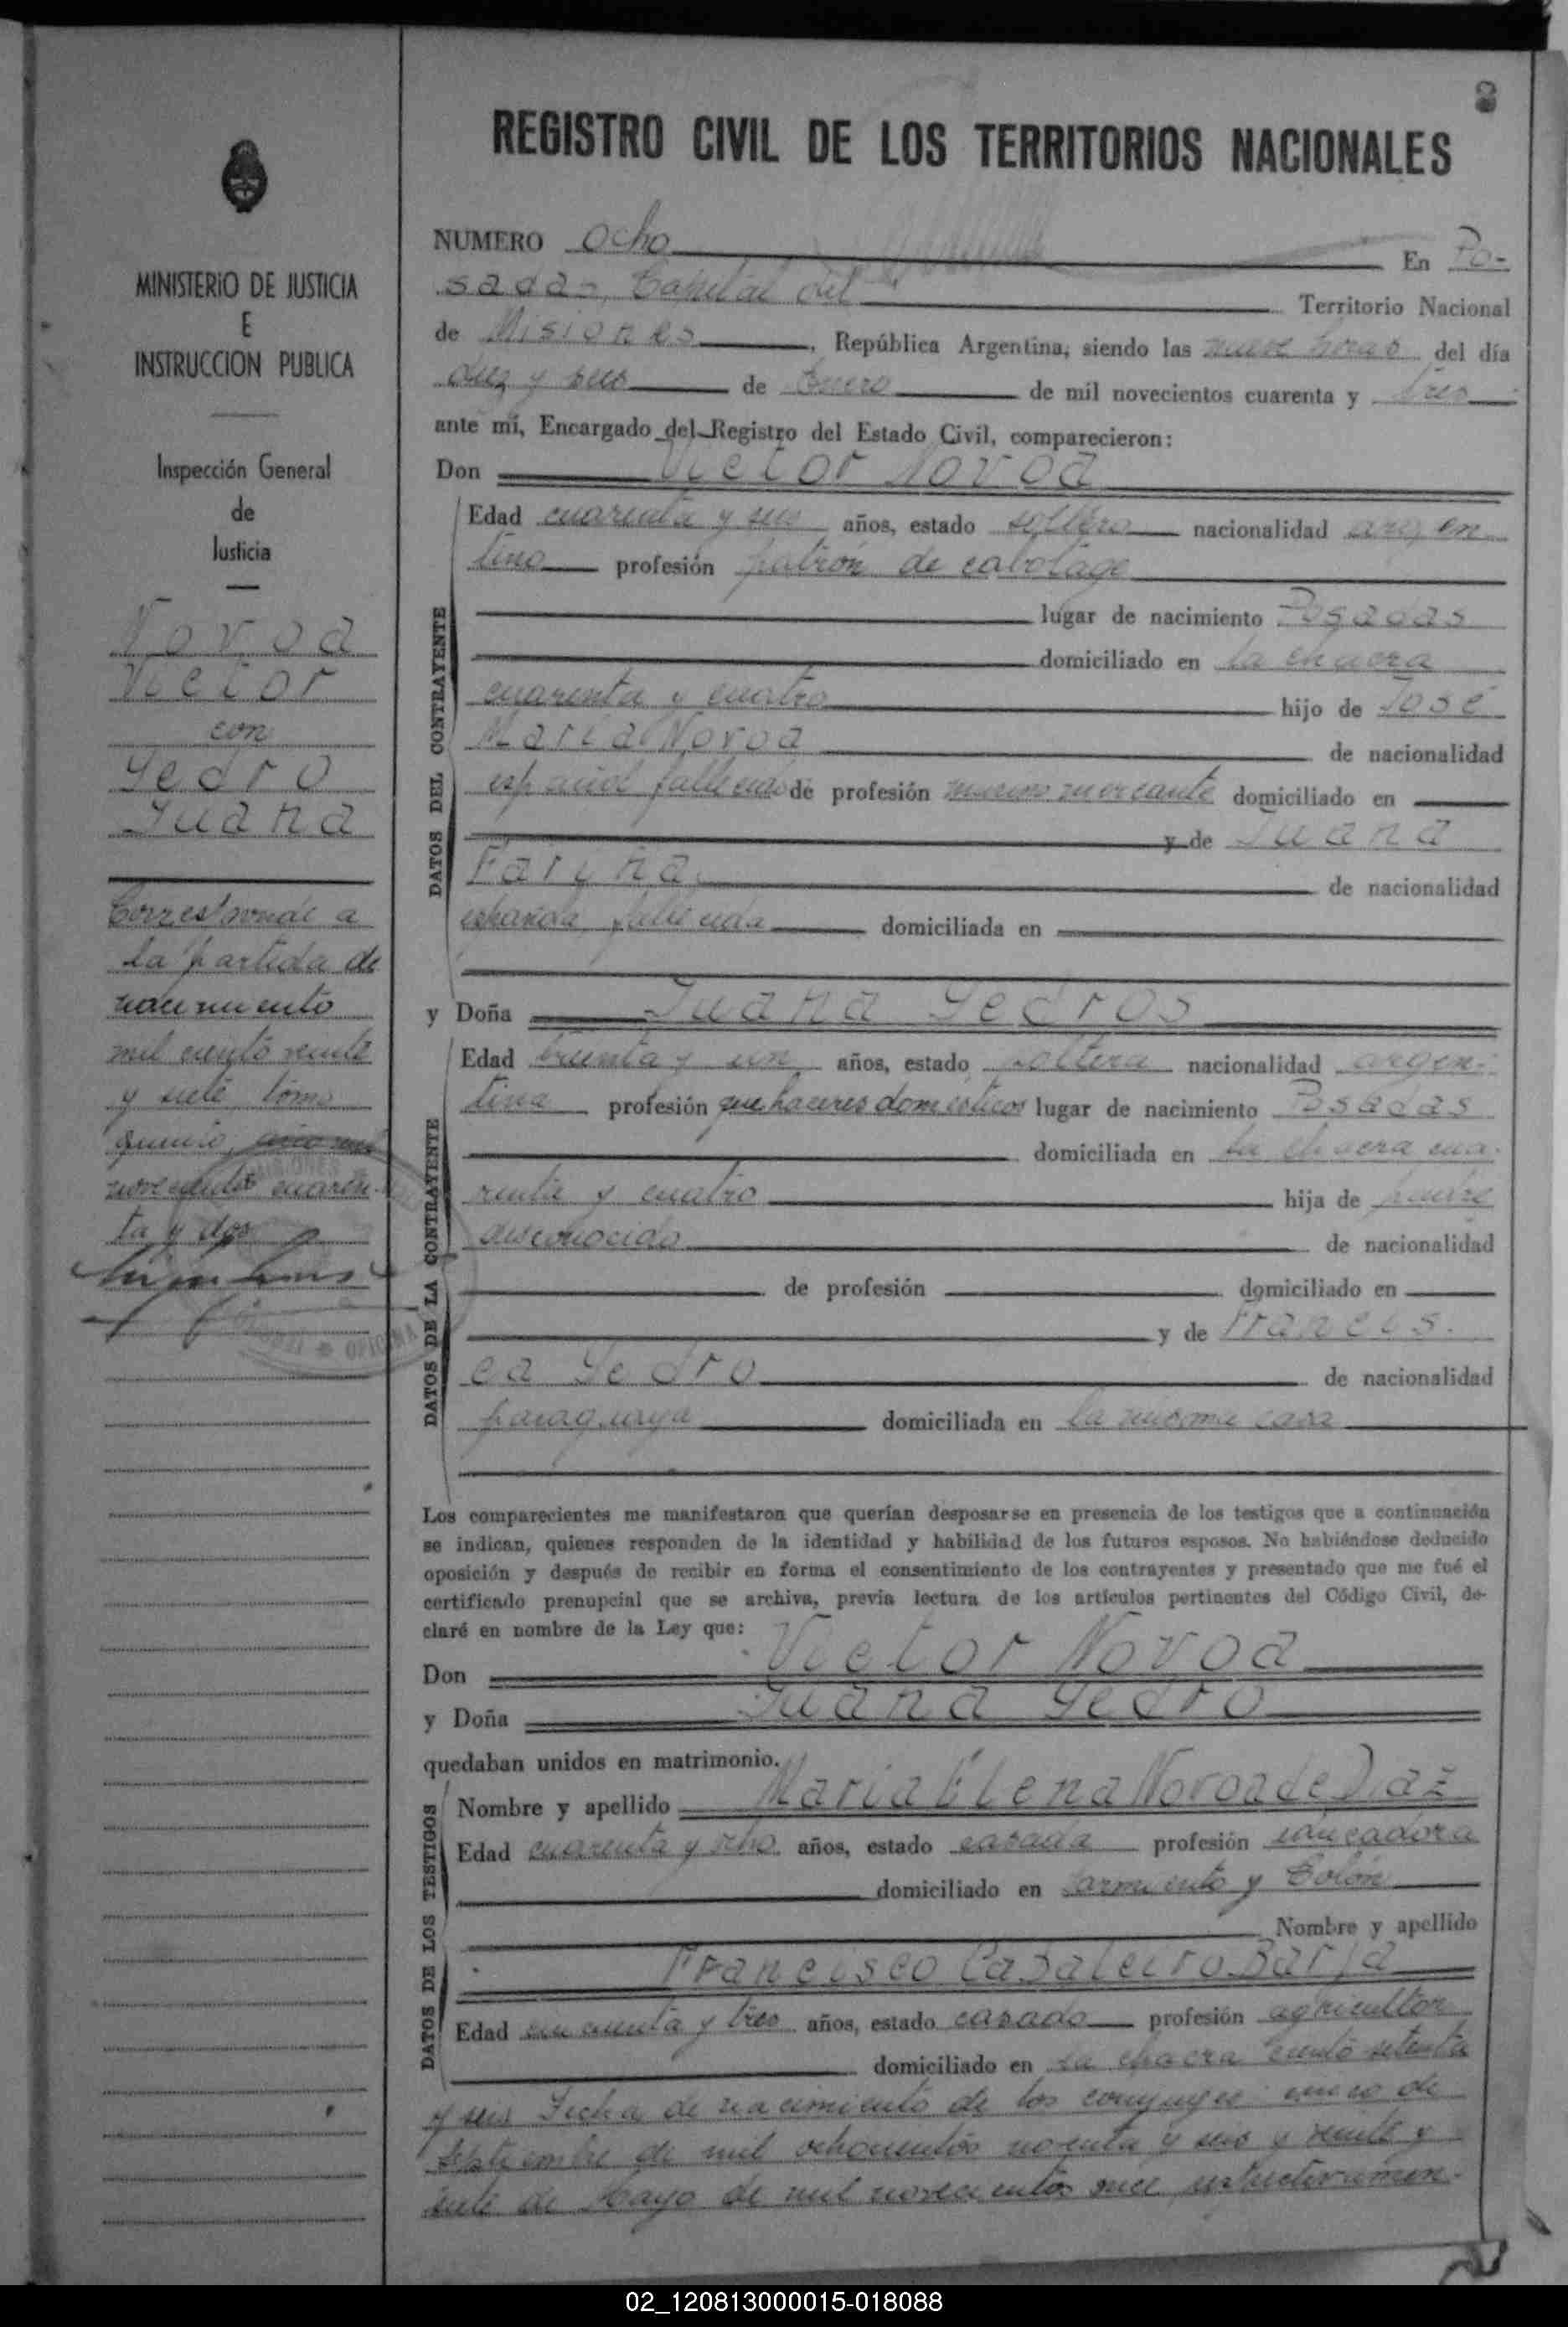 8
REGISTRO CIVIL DE LOS TERRITORIOS NACIONALES
NUMERO ocho En Po-
sadas, Capital del Territorio Nacional
de Misiones, República Argentina, siendo las nueve horas del día
diez y seis de Enero de mil novecientos cuarenta y tres
ante mí, Encargado del Registro del Estado Civil, comparecieron:
Don Victor Novoa
Edad cuarenta y seis años, estado soltero nacionalidad argen
tino profesión patrón de cabotage
lugar de nacimiento Posadas
domiciliado en la chacra
cuarenta y cuatro hijo de José
Maria Novoa de nacionalidad
español fallecido de profesión marino mercante domiciliado en
y de Juana
Fariña de nacionalidad
española fallecida domiciliada en
y Doña Juana Gedros
Edad treinta y un años, estado soltera nacionalidad argen-
tina profesión quehaceres domésticos lugar de nacimiento Posadas
domiciliada en la chacra cua-
renta y cuatro hija de padre
desconocido de nacionalidad
de profesión domiciliado en
y de Francis-
ca Gedro de nacionalidad
paraguaya domiciliada en la misma casa
Los comparecientes me manifestaron que querían desposarse en presencia de los testigos que a continuación
se indican, quienes responden de la identidad y habilidad de los futuros esposos. No habiéndose deducido
oposición y después de recibir en forma el consentimiento de los contrayentes y presentado que me fué el
certificado prenupcial que se archiva, previa lectura de los artículos pertinentes del Código Civil, de-
claré en nombre de la Ley que:
Don Victor Novoa
y Doña Juana Gedro
quedaban unidos en matrimonio.
Nombre y apellido Maria Elena Novoa de Diaz
Edad cuarenta y ocho años, estado casada profesión educadora
domiciliado en Sarmiento y Colón
Nombre y apellido
Francisco Casaleiro Barja
Edad cincuenta y tres años, estado casado profesión agricultor
domiciliado en la chacra ciento setenta
y seis Fecha de nacimiento de los conyuges: cinco de
Septiembre de mil ochocientos noventa y seis y veinte y
siete de Mayo de mil novecientos once respectivamen-
DATOS DEL CONTRAYENTE
DATOS DE LA CONTRAYENTE
DATOS DE LOS TESTIGOS
MINISTERIO DE JUSTICIA
E
INSTRUCCION PUBLICA
Inspección General
de
Justicia
Novoa
Victor
con
Gedro
Juana
Corresponde a
la partida de
nacimiento
mil ciento veinte
y siete, tomo
novecientos cuaren-
ta y dos
02_120813000015-018088